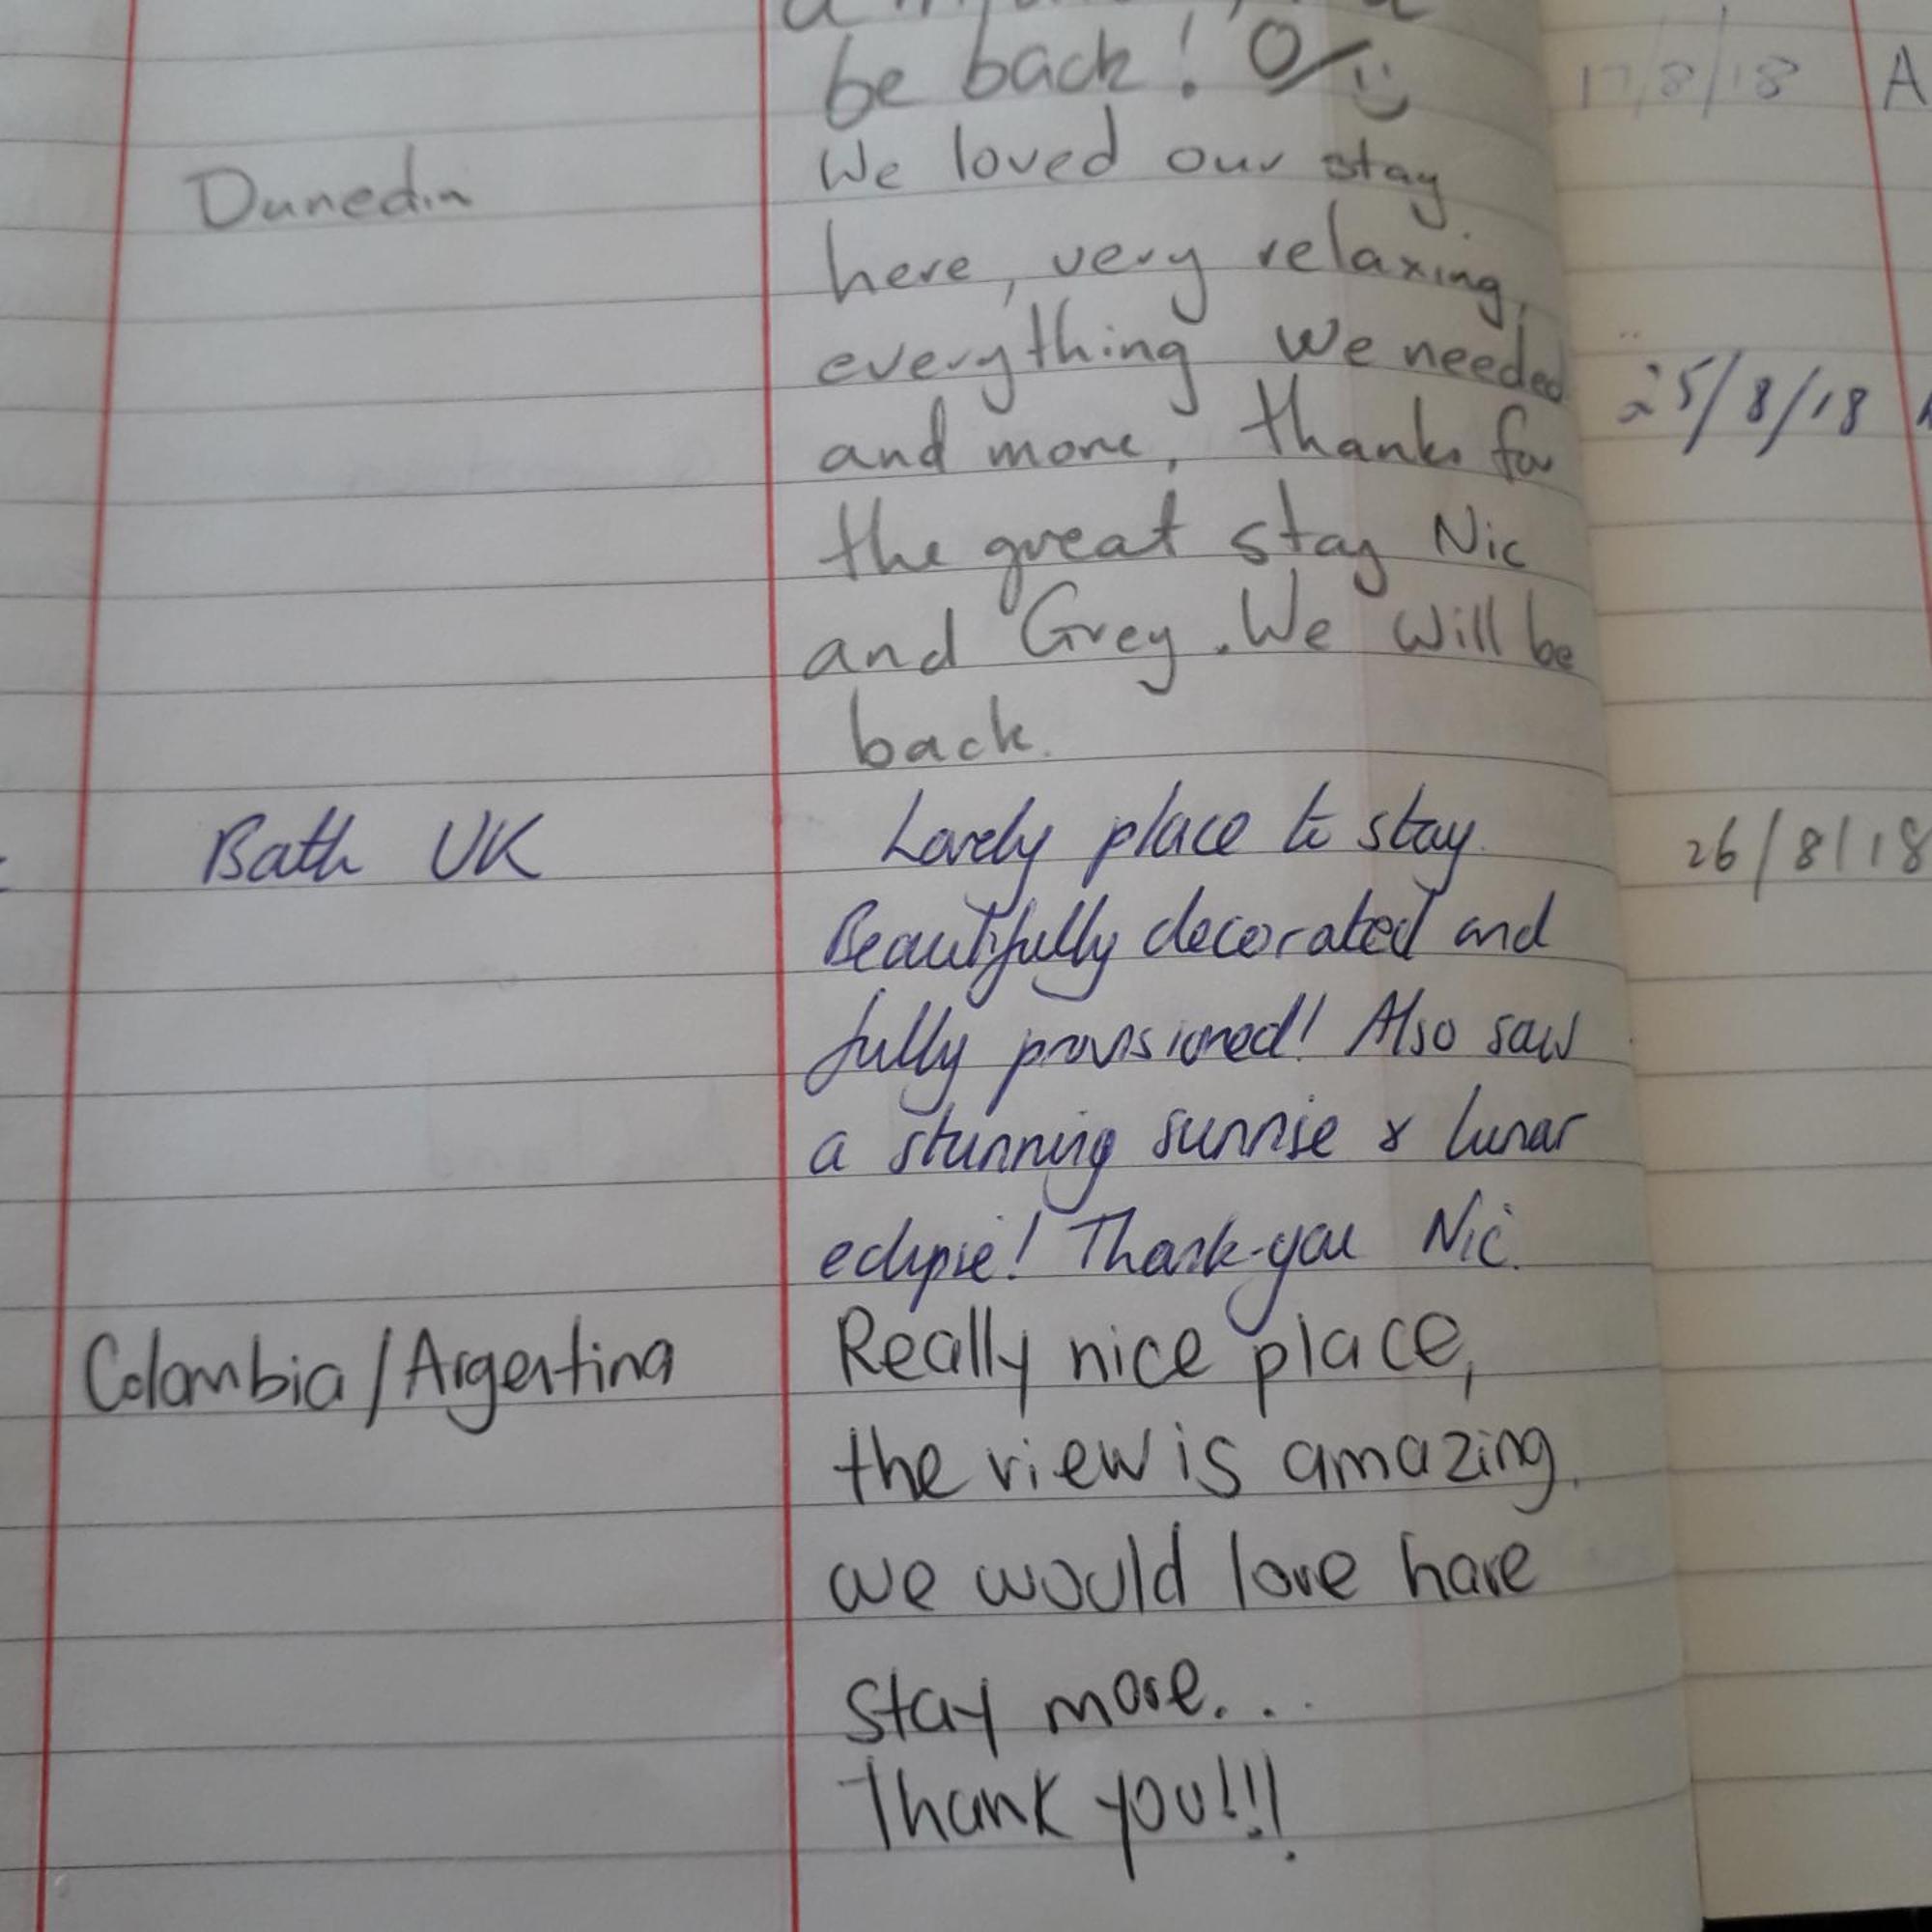 be back!
Dunedin
We loved our stay
here, very relaxing,
everything we needed
and more, thanks for
the great stay Nic
and Grey. We will be
back.
Bath UK
Lovely place to stay.
Beautifully decorated and
fully provisioned! Also saw
a stunning sunrise & lunar
eclipse! Thank-you Nic.
Colombia/Argentina
Really nice place,
the view is amazing.
we would love have
stay more...
Thank you!!!
17/8/18 A
25/8/18
26/8/18